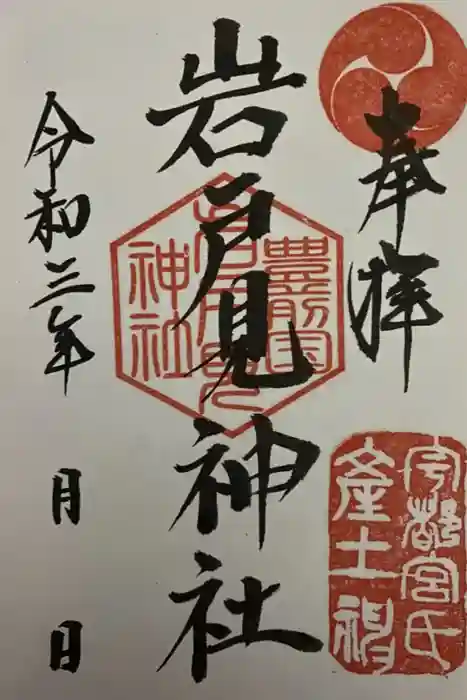 奉拝
宇都宮氏
産土神
岩戸見神社
豊前国
岩戸見
神社
令和三年 月 日